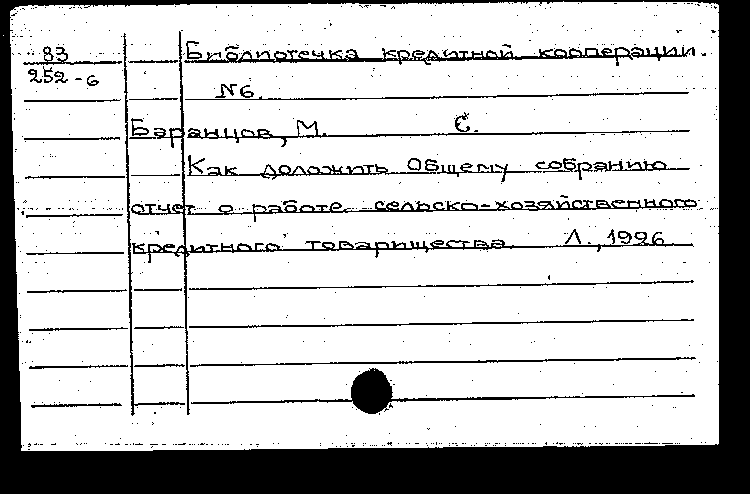 83 Библиотечка кредитной кооперации.
252-6 №6.
Баранцов, М. Е.
Как доложить Общему собранию
отчет о работе сельско-хозяйственного
кредитного товарищества. Л., 1926